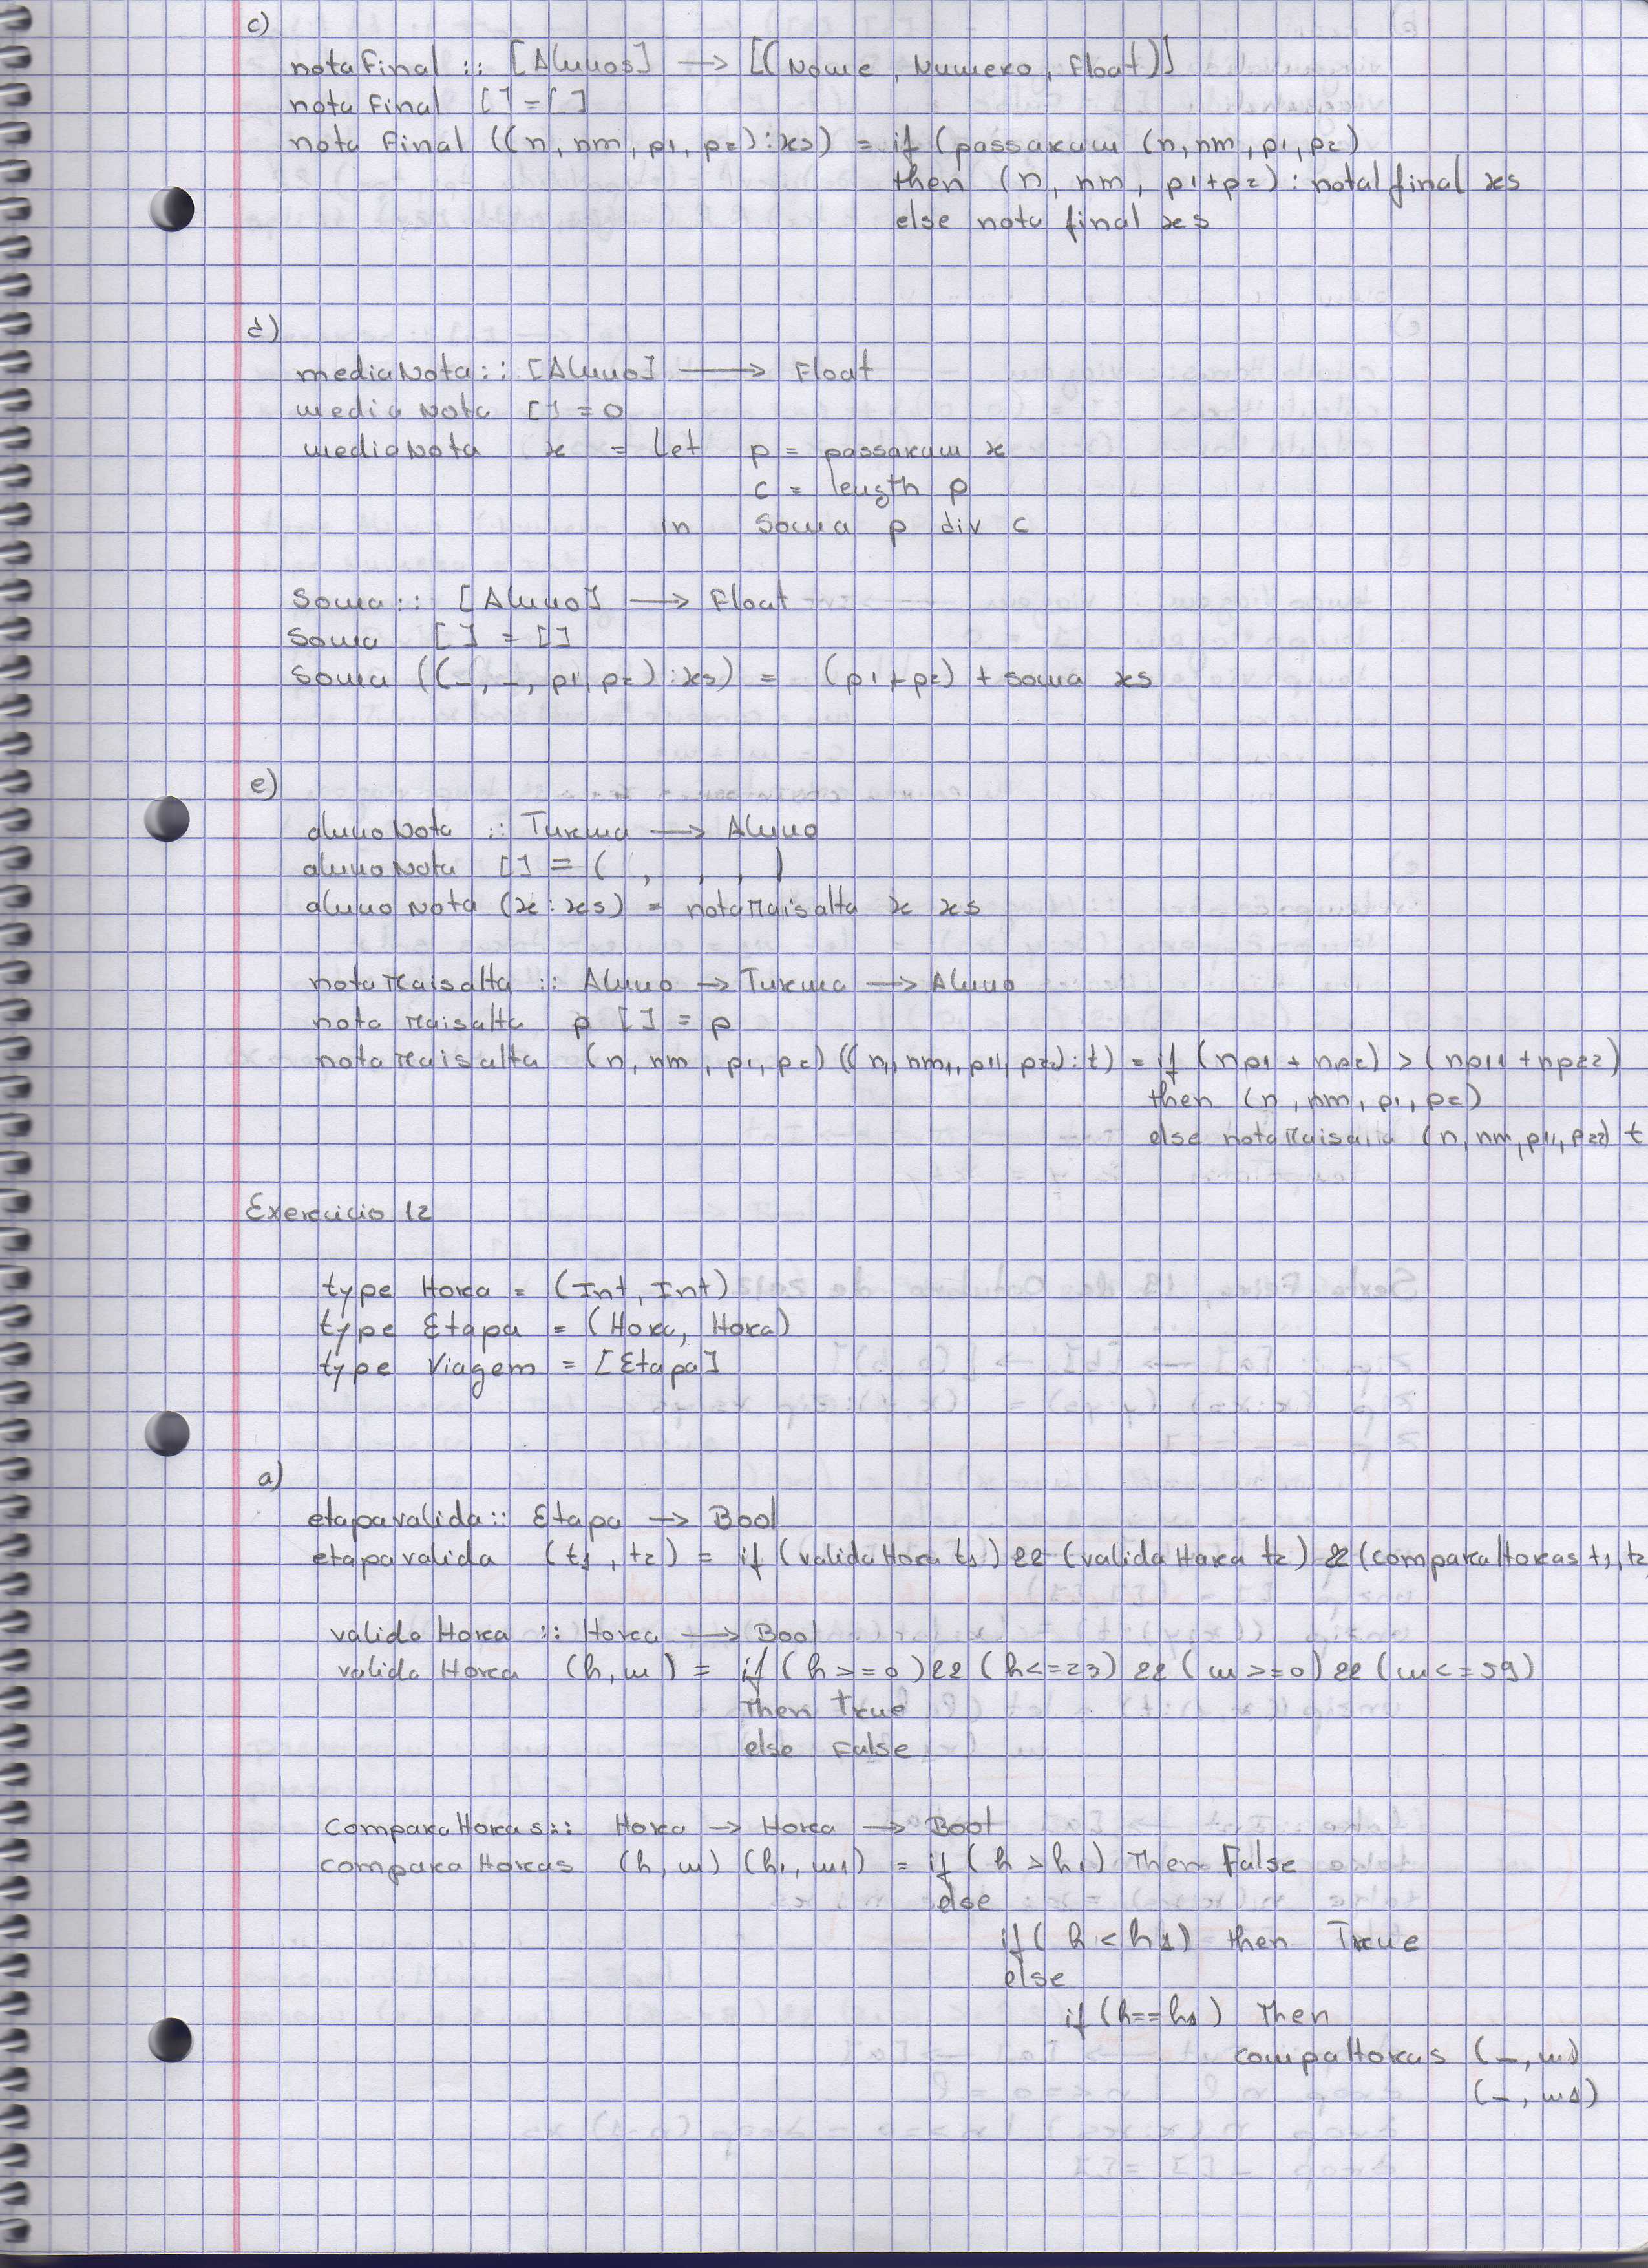 c)
notaFinal :: [Alunos] → [(Nome, Numero, Float)]
nota Final [] = []
nota Final ((n, nm, p1, p2):xs) = if (passaram (n, nm, p1, p2)
then (n, nm, p1+p2) : notal final xs
else nota final xs
d)
mediaNota :: [Aluno] → Float
media Nota [] = 0
mediaNota x = let p = passaram x
c = length p
in Soma p div c
Soma :: [Aluno] → Float
Soma [] = []
Soma ((_, _, p1, p2):xs) = (p1+p2) + soma xs
e)
alunoNota :: Turma → Aluno
alunoNota [] = ( , , , )
aluno Nota (x:xs) = notaMaisalta x xs
notaMaisalta :: Aluno → Turma → Aluno
nota Maisalta p [] = p
notaMaisalta (n, nm, p1, p2) ((n1, nm1, p11, p22):t) = if (np1 + np2) > (np11 + np22)
then (n, nm, p1, p2)
else notaMaisalta (n, nm, p11, p22) t
Exercicio 12
type Hora = (Int, Int)
type Etapa = (Hora, Hora)
type Viagem = [Etapa]
a)
etapavalida :: Etapa → Bool
etapavalida (t1, t2) = if (validaHora t1) && (validaHora t2) && (comparaHoras t1, t2
valida Hora :: Hora → Bool
valida Hora (h, m) = if (h >= 0) && (h <= 23) && (m >= 0) && (m <= 59)
Then True
else False
comparaHoras :: Hora → Hora → Bool
compara Horas (h, m) (h1, m1) = if (h > h1) Then False
else
if (h < h1) then True
else
if (h == h1) Then
compaHoras (_, m)
(_, m1)